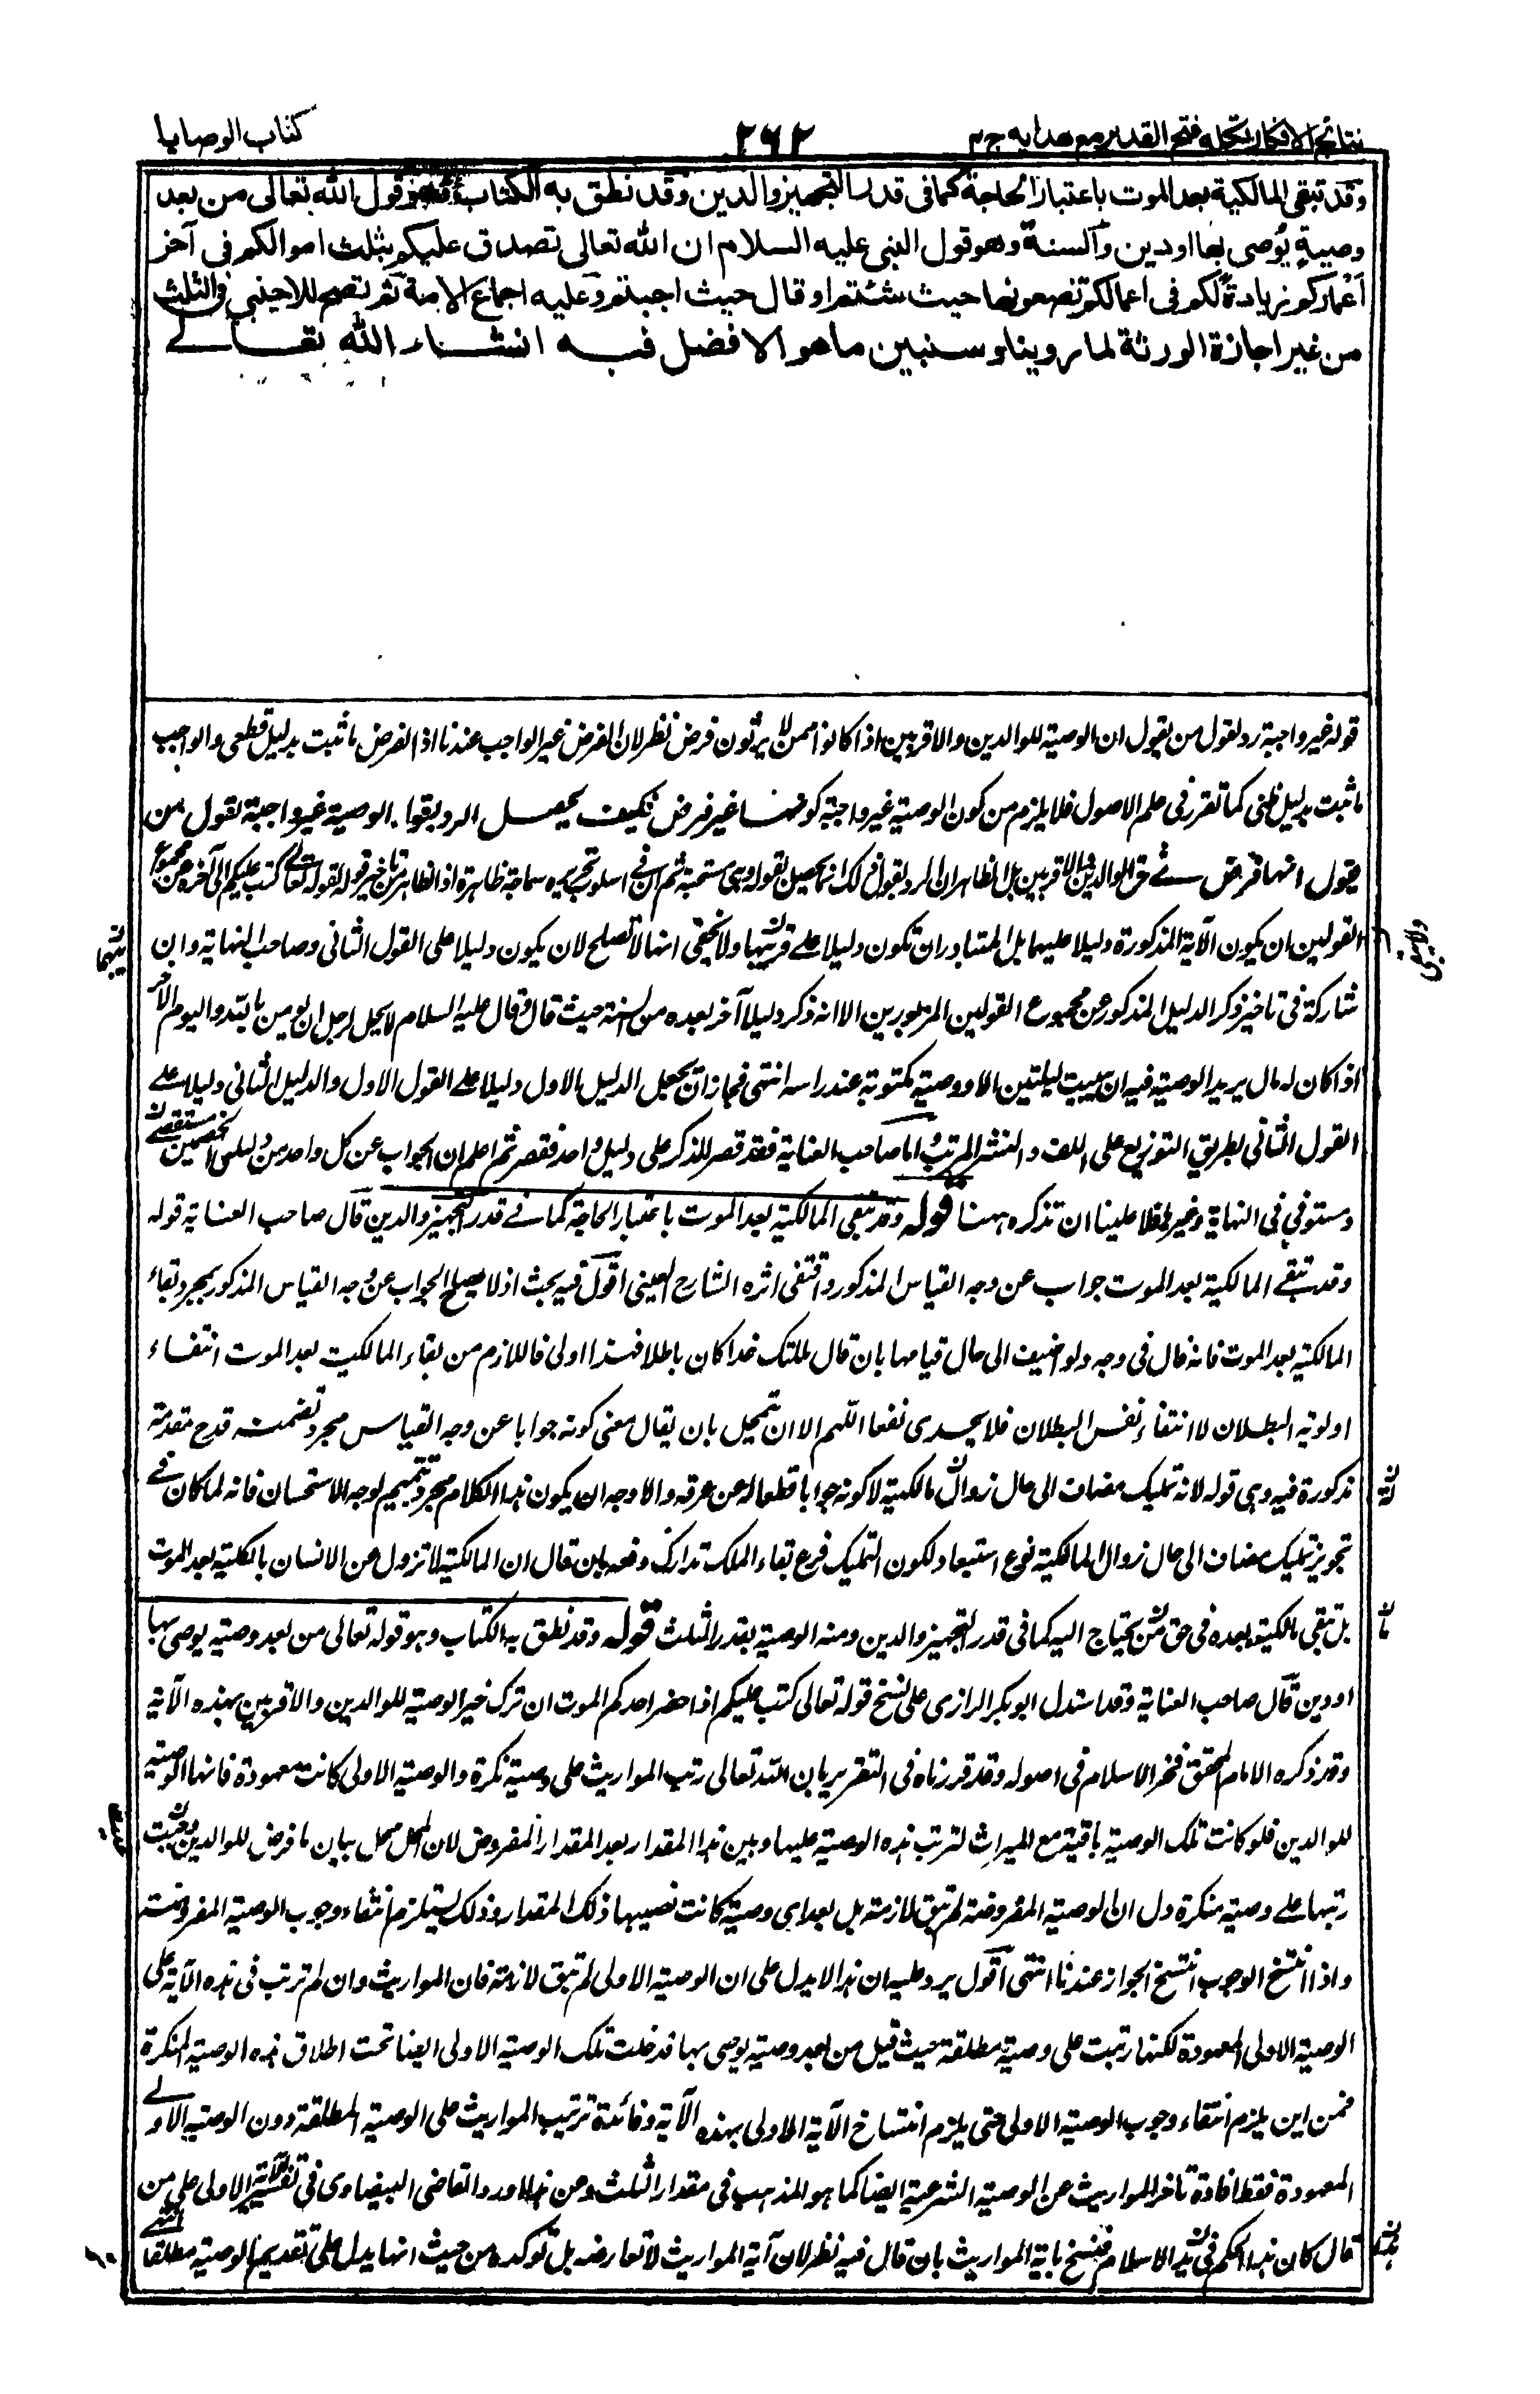 نتائج الافكار تكمله فتح القدير مع هدايه ج ٤
٢٦٢
كتاب الوصايا
وقد تبقى المالكية بعد الموت باعتبار الحاجة كما فى قدر التجهيز والدين وقد نطق به الكتاب وهو قول الله تعالى من بعد
وصيةٍ يُوصى بها اودين والسنة وهو قول النبى عليه السلام ان الله تعالى تصدق عليكم بثلث اموالكم فى آخر
اعماركم زيادةً لكم فى اعمالكم تضعونها حيث شئتم او قال حيث احببتم وعليه اجماع الامة ثم تصح للاجنبى فى الثلث
من غير اجازة الورثة لما روينا وسنبين ما هو الافضل فيه انشاء الله تعالى
قوله غير واجبة رد لقول من يقول ان الوصية للوالدين والاقربين اذا كانوا ممن لا يرثون فرض نظر لان الفرض غير الواجب عندنا اذ الفرض ما ثبت بدليل قطعى والواجب
ما ثبت بدليل ظنى كما تقرر فى علم الاصول فلا يلزم من كون الوصية غير واجبة كونها غير فرض فكيف يحصل الرد بقوله الوصية غير واجبة لقول من
يقول انها فرض فى حق الوالدين والاقربين بل الظاهر ان الرد لقول ذلك انما يحصل بقوله وهى مستحبة ثم ان فى اسلوب تحريره سماجة ظاهرة اذ الظاهر من تاخير قوله لقوله تعالى كتب عليكم الى آخره عن مجموع
القولين ان يكون الآية المذكورة دليلا عليهما بل المتبادر ان تكون دليلا على قريبها ولا يخفى انها لا تصلح لان يكون دليلا على القول الثانى وصاحب النهاية وان
شاركه فى تاخير ذكر الدليل المذكور عن مجموع القولين المزبورين الا انه ذكر دليلا آخر بعده من السنة حيث قال وقال عليه السلام لا يحل لرجل يؤمن بالله واليوم الآخر
اذا كان له مال يريد الوصية فيه ان يبيت ليلتين الا ووصيته مكتوبة عند راسه انتهى فجاز ان يجعل الدليل الاول دليلا على القول الاول والدليل الثانى دليلا على
القول الثانى بطريق التوزيع على اللف والنشر المرتب اما صاحب العناية فقد قصر للذكر على دليل واحد فقصر ثم اعلم ان الجواب عن كل واحد من دليلى الخصمين مستقصى
ومستوفى فى النهاية وغيره فلا علينا ان نذكره ههنا قوله وقد تبقى المالكية بعد الموت باعتبار الحاجة كما فى قدر التجهيز والدين قال صاحب العناية قوله
وقد تبقى المالكية بعد الموت جواب عن وجه القياس المذكور واقتفى اثره الشارح العينى اقول فيه بحث اذ لا يصلح الجواب عن وجه القياس المذكور بمجرد بقاء
المالكية بعد الموت فانه قال فى وجه ولو اضيف الى حال قيامها بان قال ملكتك غدا كان باطلا فهذا اولى فاللازم من بقاء المالكيت بعد الموت انتفاء
اولوية البطلان لا انتفاء نفس البطلان فلا يجدى نفعا اللهم الا ان يتمحل بان يقال معنى كونه جوابا عن وجه القياس مجرد تضمنه قدح مقدمة
مذكورة فيه وهى قوله لانه تمليك مضاف الى حال زوال مالكيته لا كونه جوابا قطعا له عن عرقه والاوجه ان يكون هذا الكلام مجرد تتميم لوجه الاستحسان فانه لما كان فى
تجويز تمليك مضاف الى حال زوال المالكية نوع استبعاد لكون التمليك فرع بقاء الملك تدارك دفعه بان قال ان المالكية لا تزول عن الانسان بالكلية بعد الموت
بل تبقى مالكيته بعده فى حق من يحتاج اليه كما فى قدر التجهيز والدين ومنه الوصية بقدر الثلث قوله وقد نطق به الكتاب وهو قوله تعالى من بعد وصية يوصى بها
او دين قال صاحب العناية وقد استدل ابو بكر الرازى على نسخ قوله تعالى كتب عليكم اذا حضر احدكم الموت ان ترك خير الوصية للوالدين والاقربين بهذه الآية
وقد ذكره الامام المحقق فخر الاسلام فى اصوله وقد قررناه فى التقرير بان الله تعالى رتب المواريث على وصية نكرة والوصية الاولى كانت معهودة فانها الوصية
للوالدين فلو كانت تلك الوصية باقية مع الميراث لترتب هذه الوصية عليها وبين هذا المقدار بعد المقدار المفروض لان المحل محل بيان ما فرض للوالدين وحيث
رتبها على وصية منكرة دل ان الوصية المفروضة لم تبق لازمة بل بعد اى وصية كانت نصيبها ذلك المقدار وذلك يستلزم انتفاء وجوب الوصية المفروضة
واذا انتسخ الوجوب انتسخ الجواز عندنا انتهى اقول يرد عليه ان هذا لا يدل على ان الوصية الاولى لم تبق لازمة فان المواريث وان لم ترتب فى هذه الآية على
الوصية الاولى المعهودة لكنها رتبت على وصية مطلقة حيث قيل من بعد وصية يوصى بها فدخلت تلك الوصية الاولى ايضا تحت اطلاق هذه الوصية المنكرة
فمن اين يلزم انتفاء وجوب الوصية الاولى حتى يلزم انتساخ الآية الاولى بهذه الآية وفائدة ترتيب المواريث على الوصية المطلقة دون الوصية الاولى
المعهودة فقط افادة تاخر المواريث عن الوصية الشرعية ايضا كما هو المذهب فى مقدار الثلث وعن هذا اورد القاضى البيضاوى فى تفسير الآية الاولى على من
قال كان هذا الحكم فى بدء الاسلام فنسخ بآية المواريث بان قال فيه نظر لان آية المواريث لا تعارضه بل تؤكده من حيث انها يدل على تقديم الوصية مطلقا انتهى